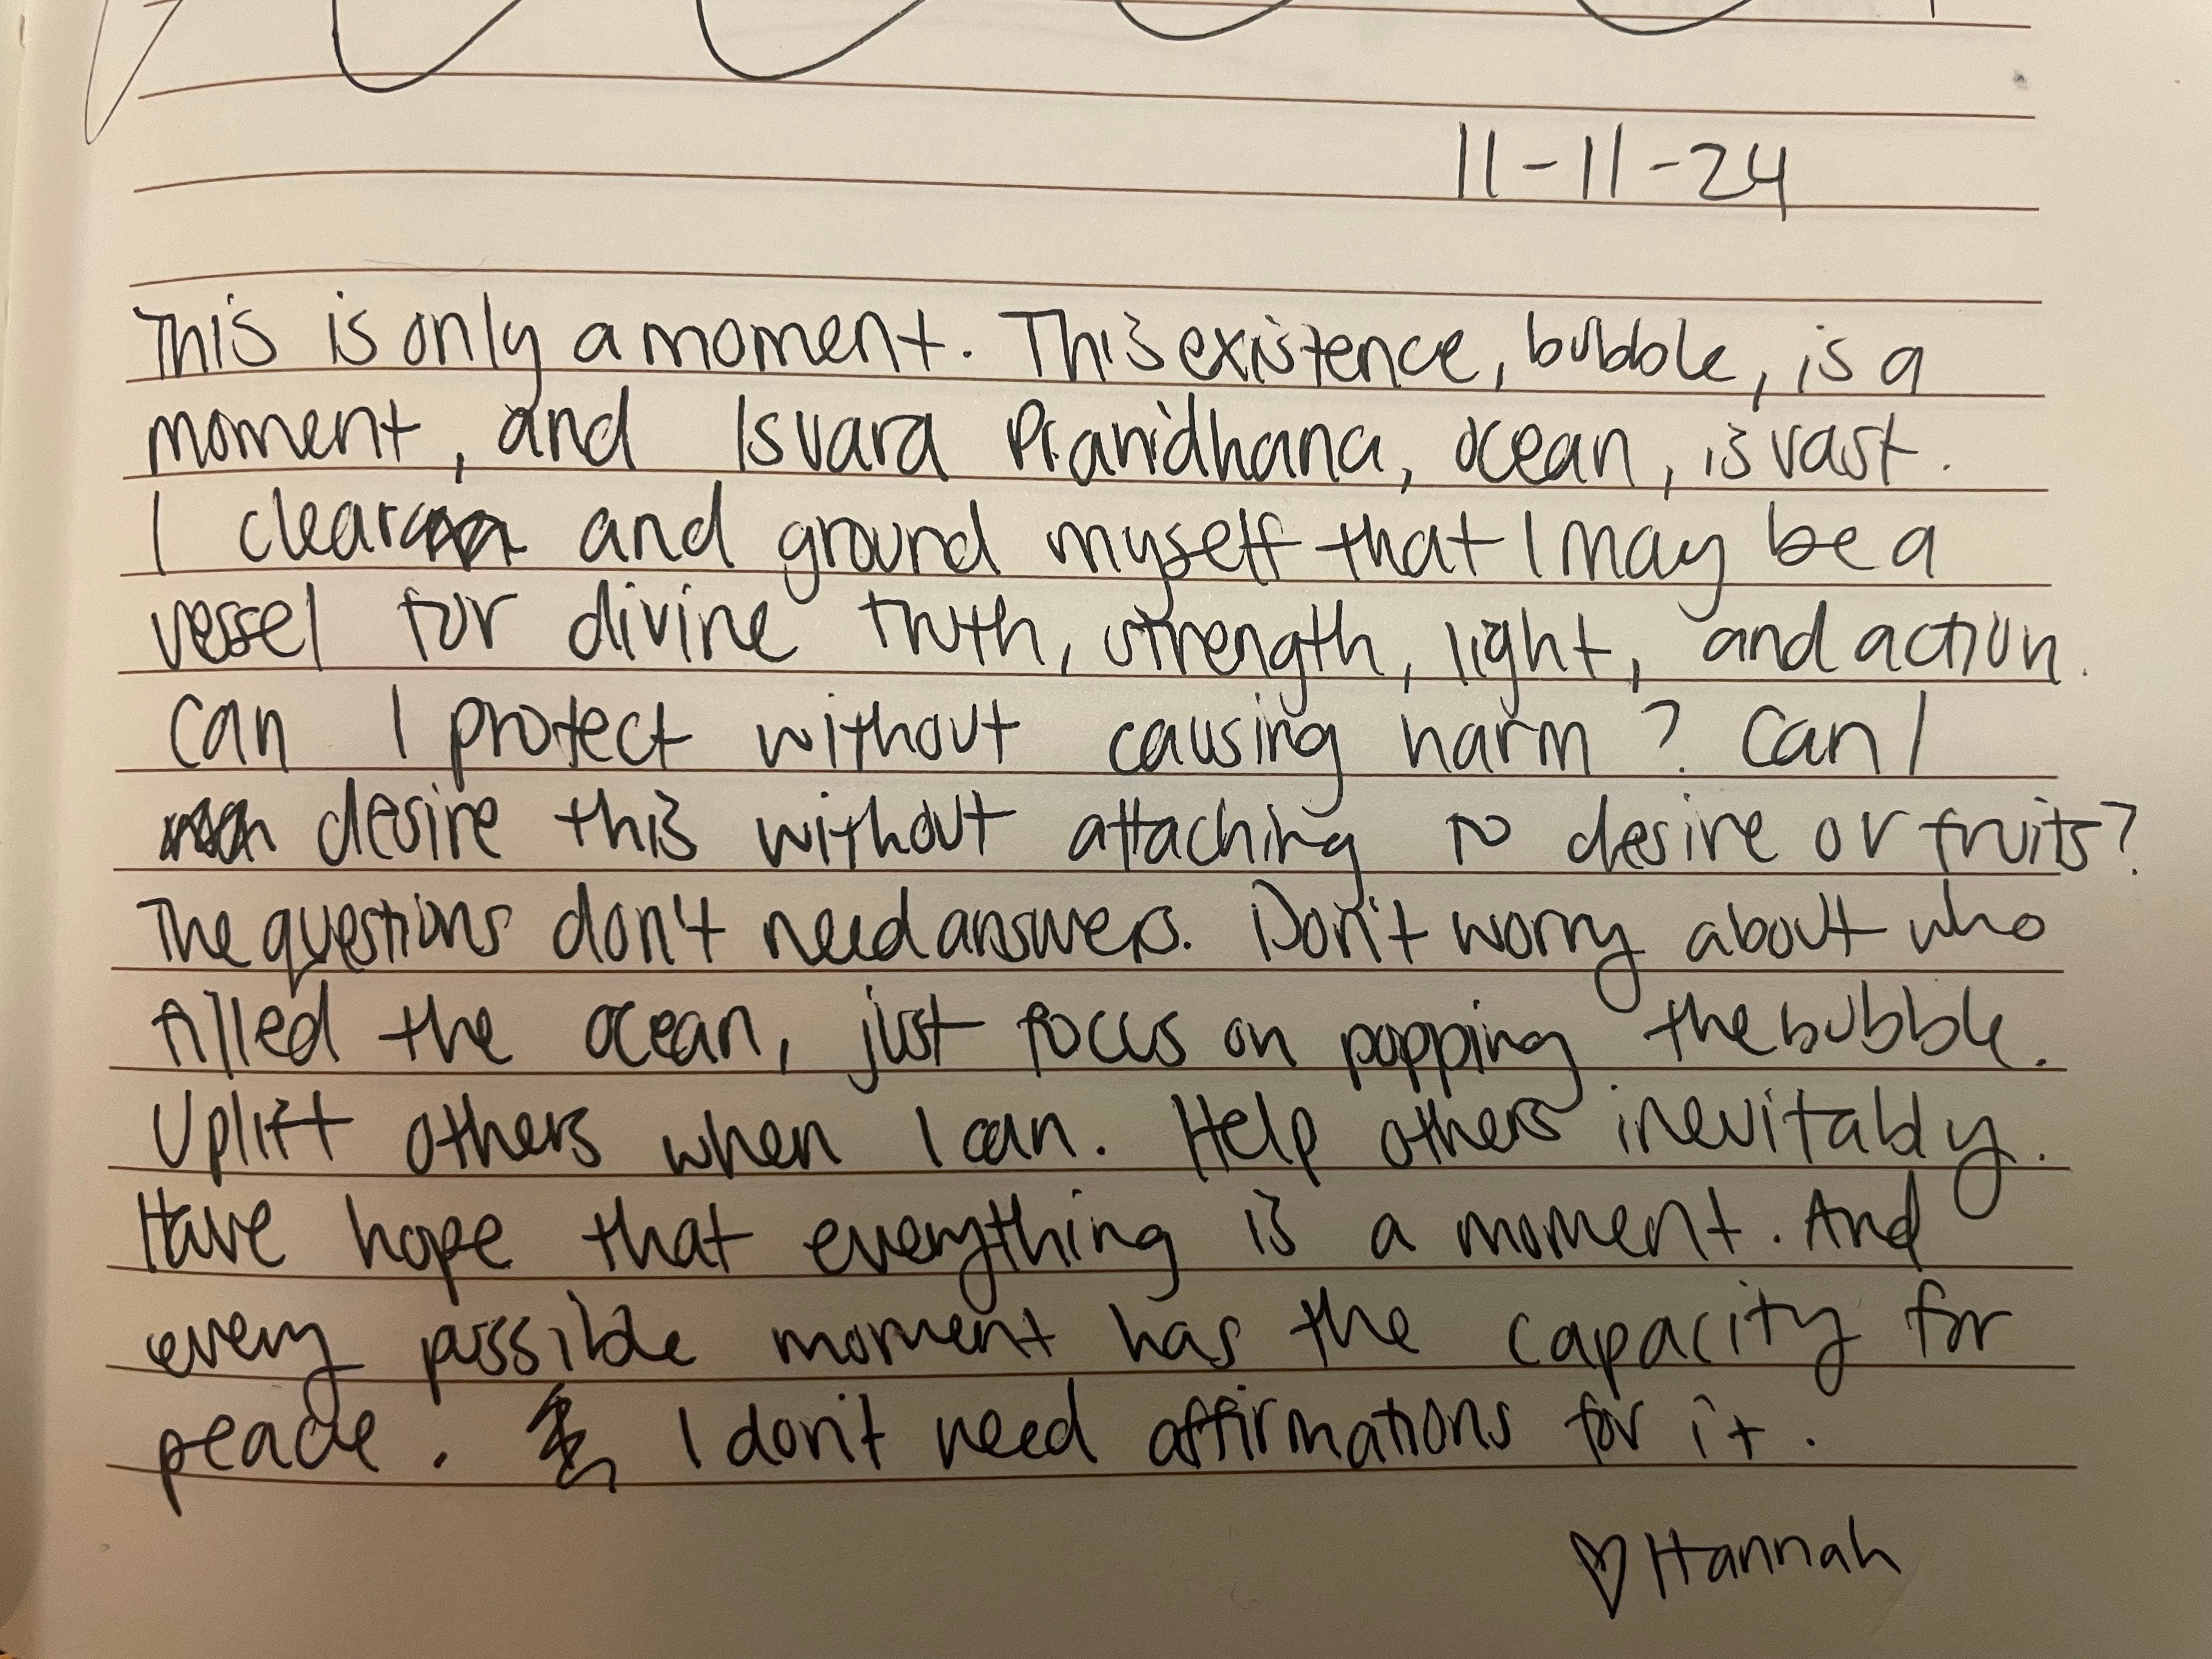 11-11-24
This is only a moment. This existence, bubble, is a
moment, and Isvara Pranidhana, ocean, is vast.
I clear and ground myself that I may be a
vessel for divine truth, strength, light, and action.
Can I protect without causing harm? Can I
desire this without attaching to desire or fruits?
The questions don't need answers. Don't worry about who
filled the ocean, just focus on popping the bubble.
Uplift others when I can. Help others inevitably.
Have hope that everything is a moment. And
every possible moment has the capacity for
peace. I don't need affirmations for it.
♡ Hannah